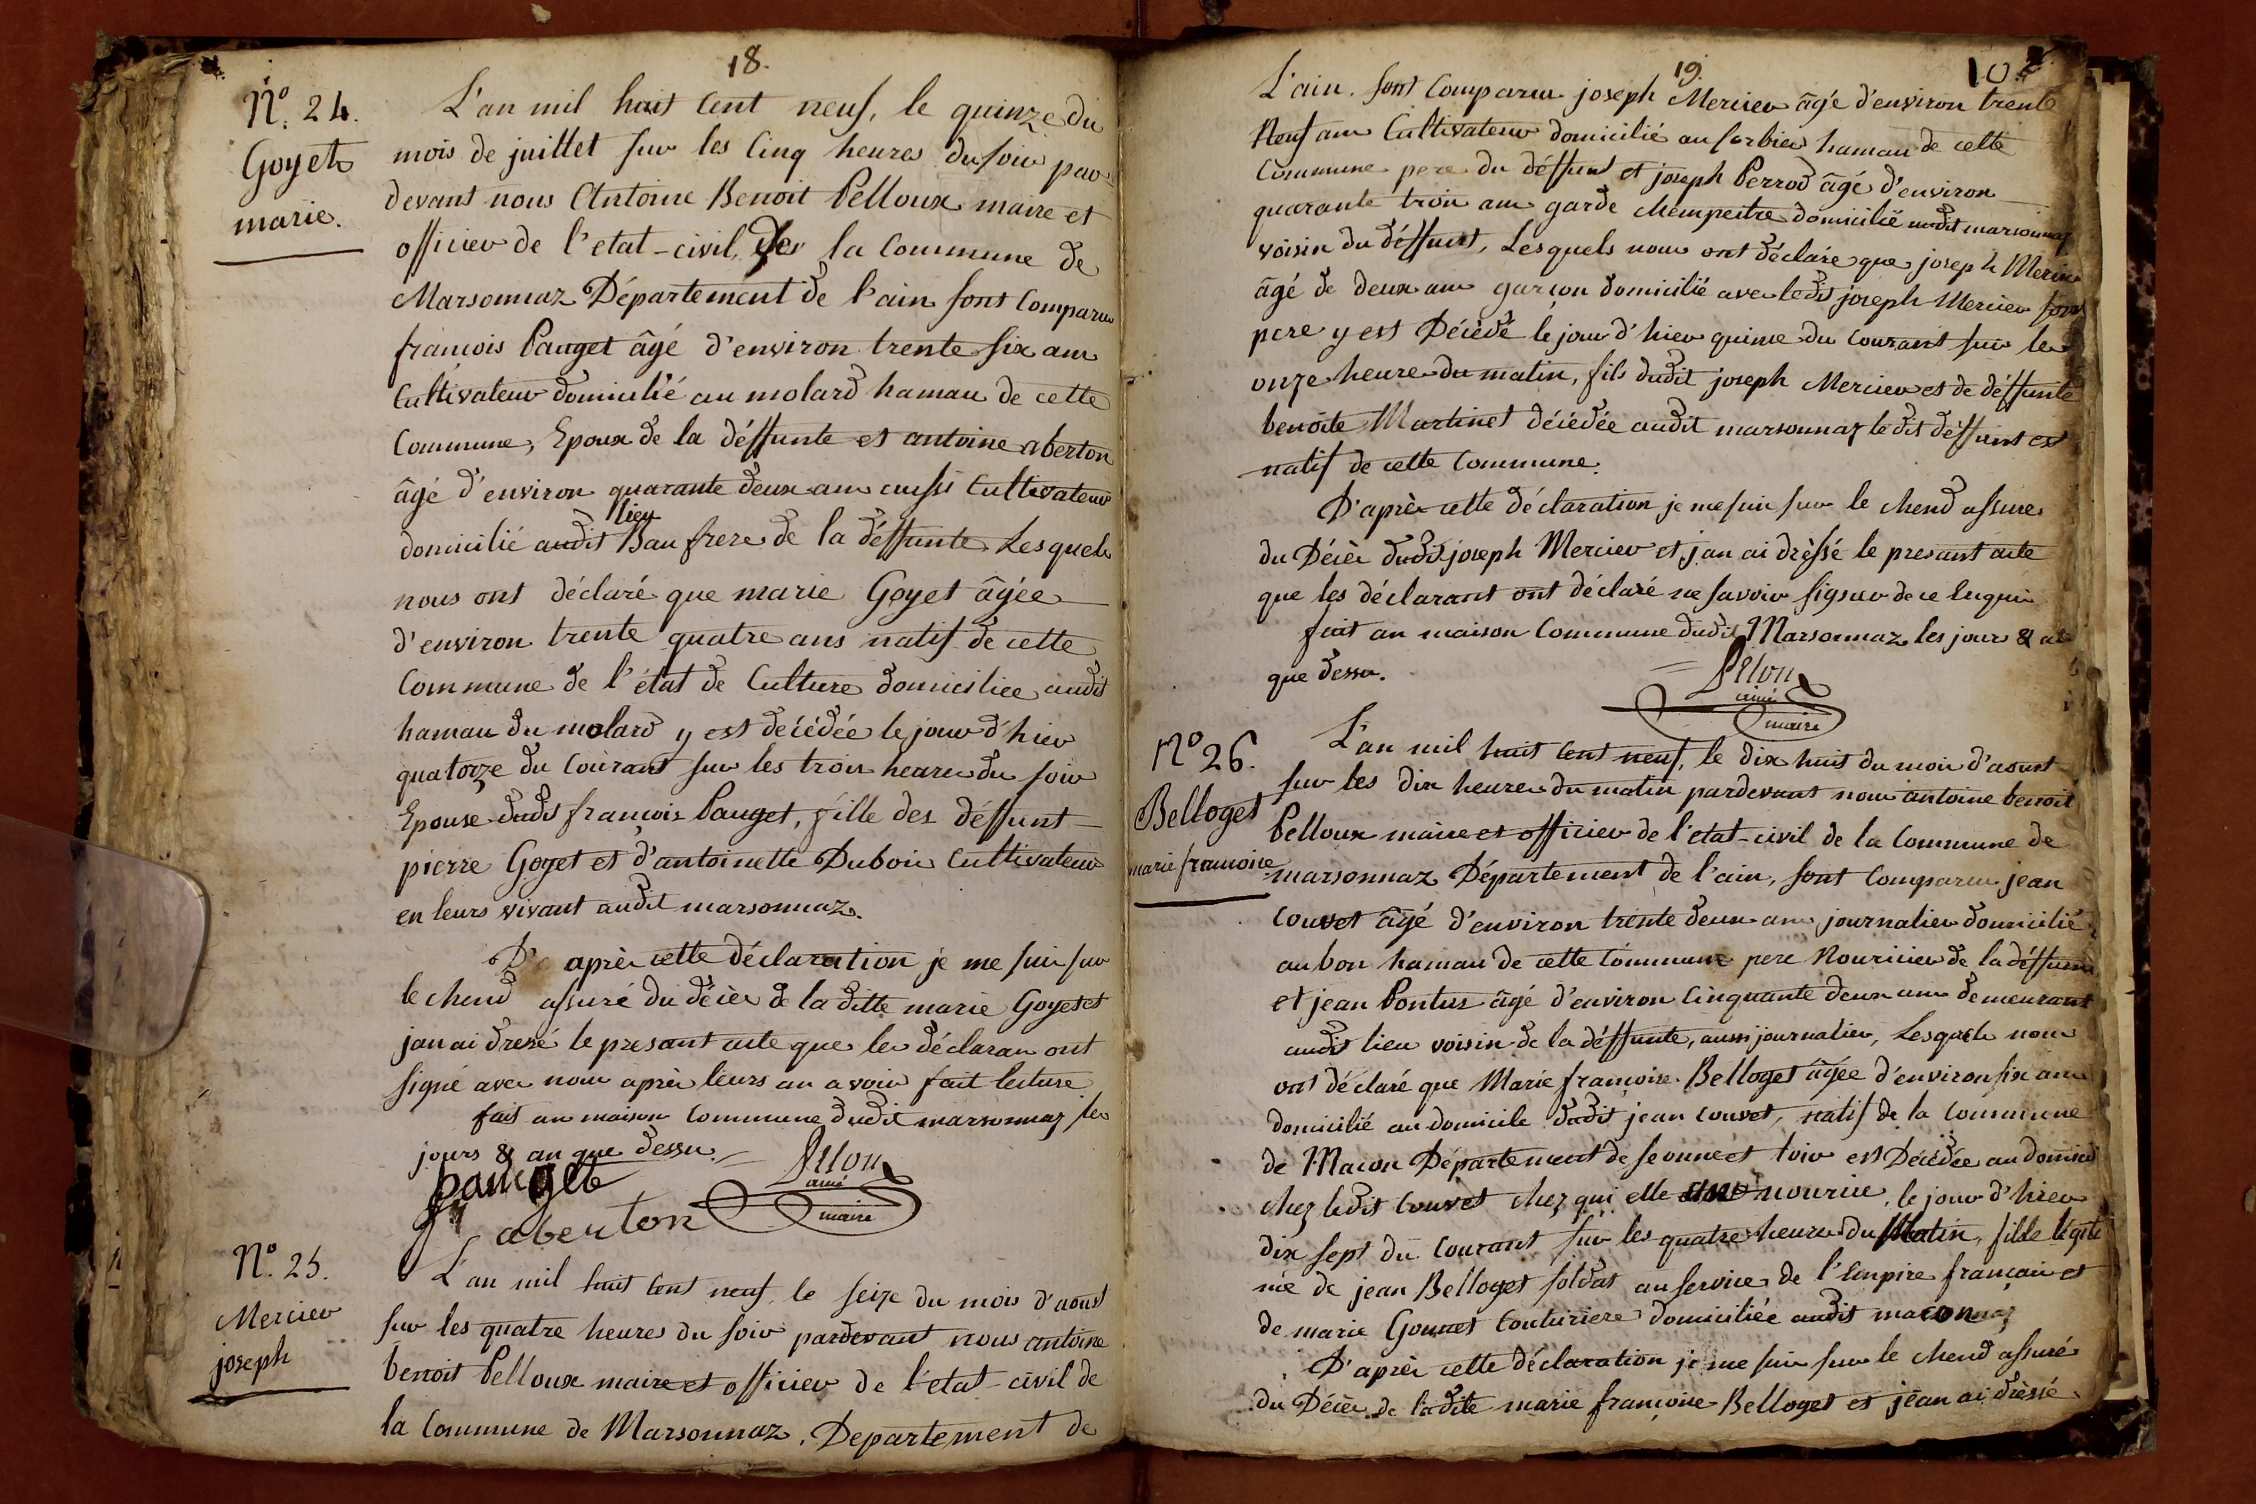 18.
N.° 24.
Goyet
marie.
L'an mil huit Cent neuf, le quinze du
mois de juillet sur les Cinq heures du soir par
devant nous Antoine Benoit Pelloux maire et
officier de l'etat-civil, de la Commune de
Marsonnaz Département de l'ain sont Comparu
francois Pauget âgé d'environ trente six ans
Cultivateur domicilié au molard hamau de cette
Commune, Epoux de la déffunte et antoine aberton
âgé d'environ quarante deux ans aussi Cultivateur
lieu
domicilié audit Bau frere de la déffunte Lesquels
nous ont déclaré que marie Goyet âgée
d'environ trente quatre ans natif de cette
Commune de l'état de Culture domiciliée audit
hamau du molard y est décédée le jour d'hier
quatorze du Courant sur les trois heures du soir
Epouse dudit francois Pauget, fille des déffunt
pierre Goyet et d'antoinette Dubois Cultivateur
en leurs vivant audit marsonnaz.
D'après cette déclaration je me suis sur
le chend assuré du décès de la ditte marie Goyet et
jan ai dressé le presant acte que les déclaran ont
signé avec nous après leurs an avoir fait lecture
fait an maison Commune dudit marsonnaz les
jours & an que dessu.
pauget
aberton
Pelloux
ainé
maire
N.° 25.
Mercier
joseph
L'an mil huit Cent neuf le seize du mois d'aoust
sur les quatre heures du soir pardevant nous antoine
benoit Pelloux maire et officier de l'etat-civil de
la Commune de Marsonnaz. Departement de
19.
10
L'ain. sont Comparu joseph Mercier âgé d'environ trente
Neuf ans Cultivateur domicilié au sorbier hamau de cette
Commune pere du déffunt et joseph Perrod âgé d'environ
quarante trois ans garde chempestre domicilié audit marsonnaz
voisin du déffunt, Lesquels nous ont déclaré que joseph Mercier
âgé de deux ans garçon domicilié avec ledit joseph Mercier son
pere y est Décédé le jour d'hier quinze du Courant sur les
onze heures du matin, fils dudit joseph Mercier et de déffunte
benoite Martinet décédée audit marsonnaz ledit déffunt est
natif de cette Commune.
D'après cette déclaration je me suis sur le chend assure
du Décès dudit joseph Mercier et jan ai drèssé le presant acte
que les déclarant ont déclaré ne savoir signer de ce enquis
fait an maison Commune dudit Marsonnaz les jours & an
que dessu.
Pelloux
ainé
maire
N° 26.
Belloget
marie francoise
L'an mil huit Cent neuf, le dix huit du mois d'aoust
sur les dix heures du matin pardevant nous antoine benoit
Pelloux maire et officier de l'etat-civil de la Commune de
marsonnaz Département de l'ain, sont Comparu jean
Couvet âgé d'environ trente deux ans journalier domicilié
au bon hamau de cette Commune pere Nouricier de la déffunte
et jean Pontus âgé d'environ Cinquante deux ans demeurant
audit lieu voisin de la déffunte, aussi journalier, Lesquels nous
ont déclaré que Marie françoise Belloget âgée d'environ six ans
domicilié au domicile dudit jean Couvet, natif de la Commune
de Macon Département de seonne et loir est Décédée au domicile
chez ledit Couvet chez qui elle nourice, le jour d'hier
dix sept du Courant sur les quatre heures du Matin, fille légiti
mé de jean Belloget soldat au service de l'Empire français et
de marie Gonnet Couturiere domiciliée audit maconnaz
D'après cette déclaration je me suis sur le chend assuré
du Décès de ladite marie françoise Belloget et jean ai drèssé